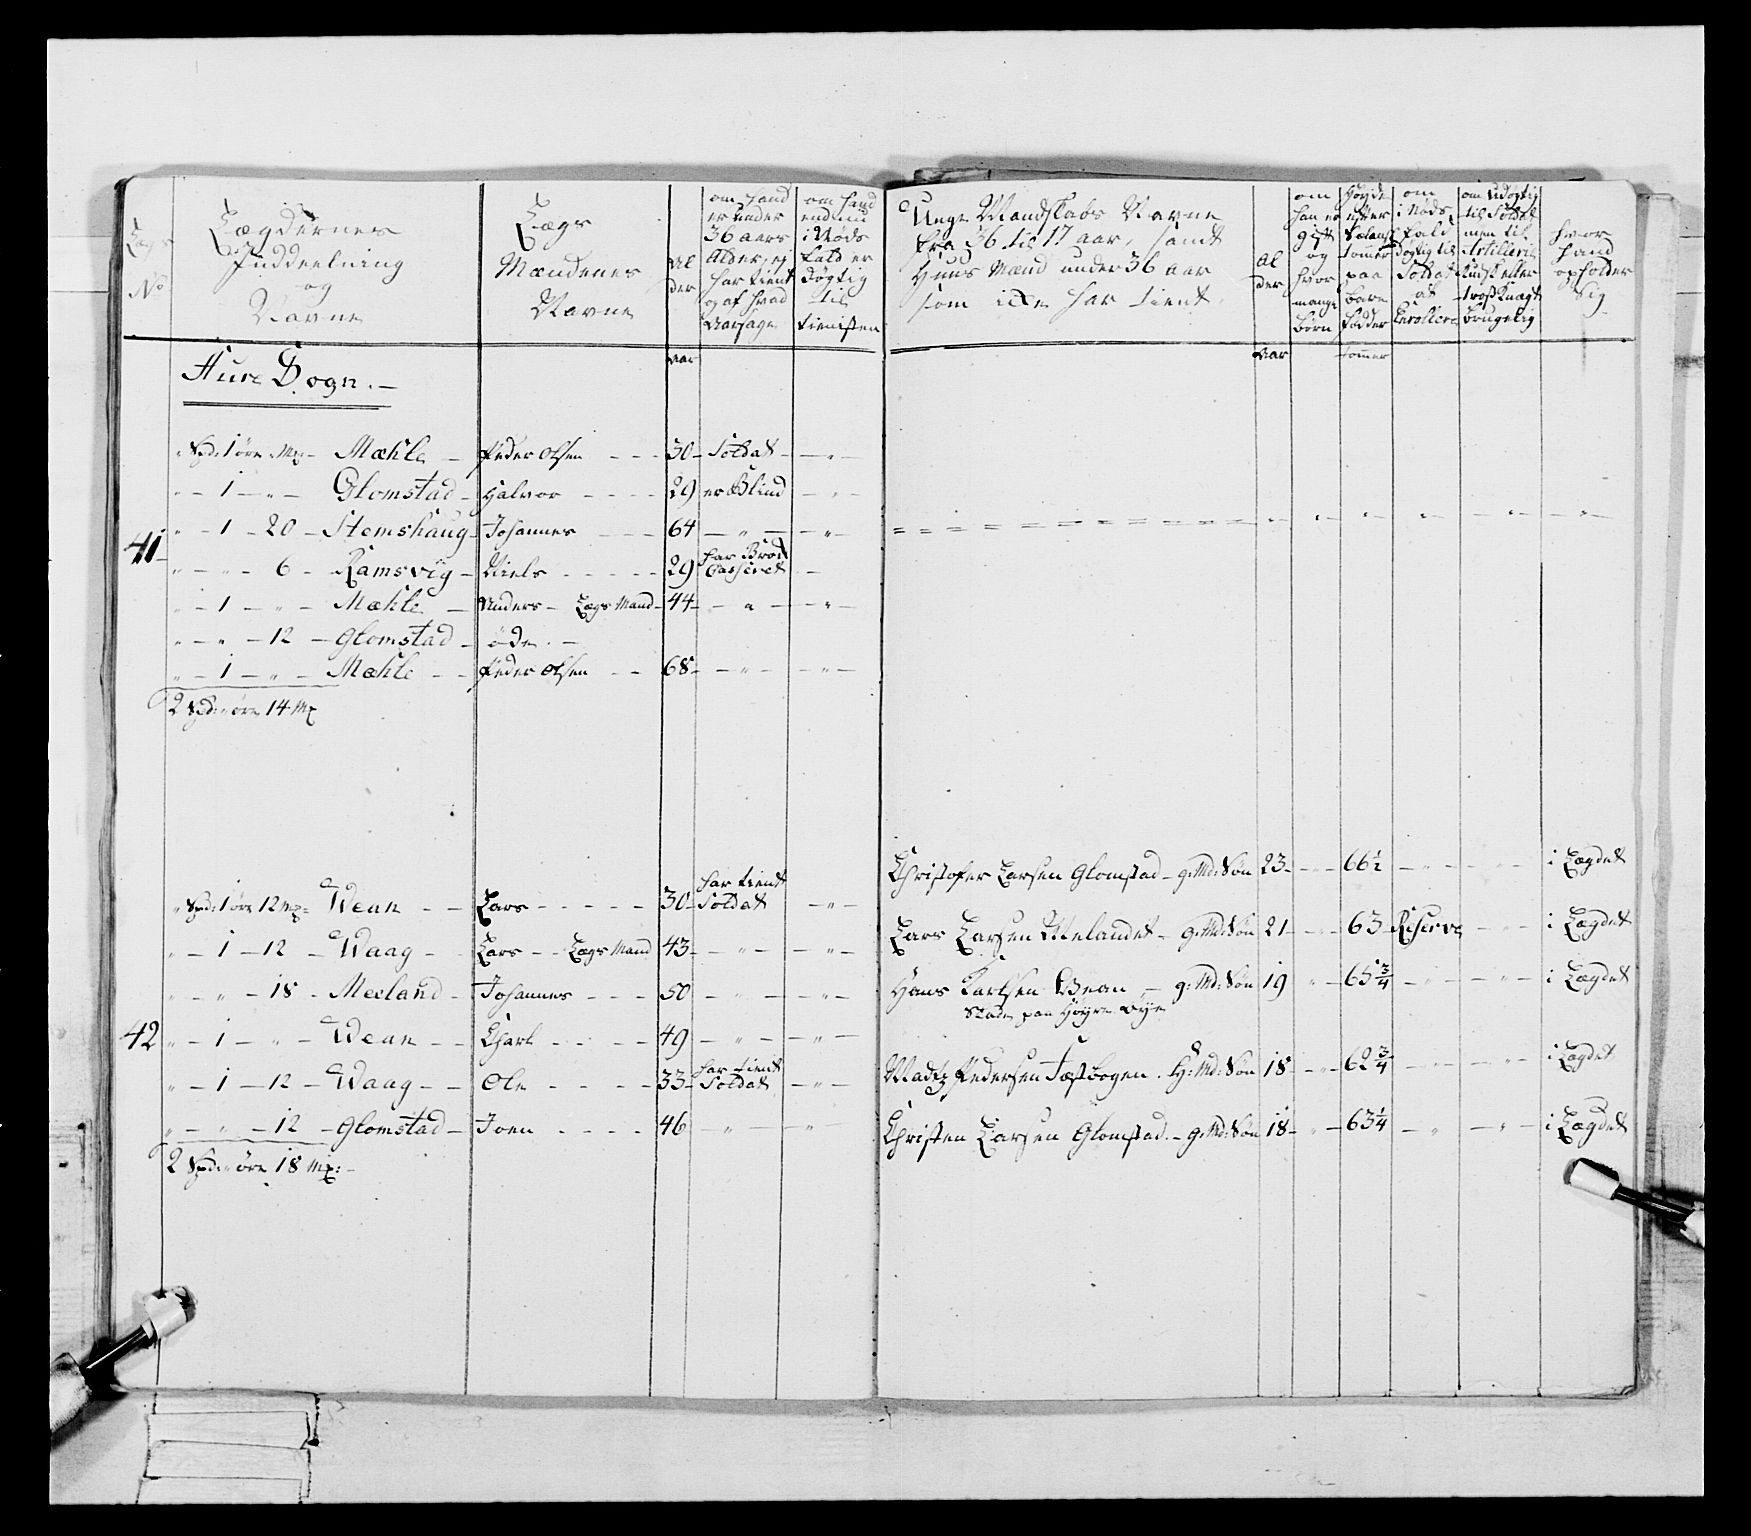 Lægs
No
Lægdernes
Inddeelning
og
Navne
Lægs
Mændenes
Navne
Al
der
om hand
er under
36 aars
Alder, ej
har tient
og af hvad
Aarsage
om hand
endnu
i Nøds
fald er
døgtig
til
tienisten
Unge Mandskabs Navne
fra 36 til 17 aar, samt
Huus Mænd under 36 aar
som icke har tient.
Al
der
om
han er
gift
og
hvor
mange
børn
Høyde
efter
Sælansk
tommer
paa
bare
fødder
om
i Nøds
fald
døgtig til
Soldat
at
Enrollere
om udøgtig
til Soldat
men til
Artillerie
Kudsk eller
trosknægt
brugelig
hvor
hand
opholder
sig
Aar
Aar
tommer
Aure Sogn. —
41
" Spd: 1 øre " Mz — Mæhle — Peder Olsen — — — 30 — Soldat — — " —
" — 1 — " — Glomstad — Halvor — — — — 29 er Blind — " —
" — 1 — 20 — Stemshaug — Johannes — — — 64 — " — — " —
" — " — 6 — Ramsvig — Niels — — — — 29 har Brok Casseret —
" — 1 — " — Mæhle — Anders — Lægs Mand — 44 — — " — — " —
" — " — 12 — Glomstad — øde. —
" — 1 — " — Mæhle — — Peder Olsen — — 68 — — " — — " —
2 Spd: " øre 14 Mz
42
" Spd: 1 øre 12 mz = Wean — — Lars — — — — — 30 — har tient Soldat — " —
" — 1 — 12 — Waag — Lars — — Lægs Mand 43 — — " — — " —
" — " — 18 — Meeland — Johannes — — — 50 — " — — " —
" — 1 — " — Wean — — Charl — — — — 49 — " — — " —
" — 1 — 12 — Waag — — Ole — — — — 33 — har tient Soldat — " —
" — " — 12 — Glomstad — Joen — — — — 46 — " — "
2 Spd: " øre 18 Mz: —
Christofer Larsen Glomstad — g: Md: Søn 23 — — — 66½ — " — " — i Lægdet
Lars Larsen Melandet — g: Md: Søn 21 — — " — 63 Reserve — " — i Lægdet
Hans Karlsen Vean — g: Md: Søn 19 " — 65¾ — " — " — i Lægdet
Skade paa Høyre Øye
Madtz Pedersen Tæstbogen. H: Md: Søn 18 — — " — 62¾ — " — " — i Lægdet
Christen Larsen Glomstad. — g: Md: Søn 18 — " — 63¼ — " — " — i Lægdet